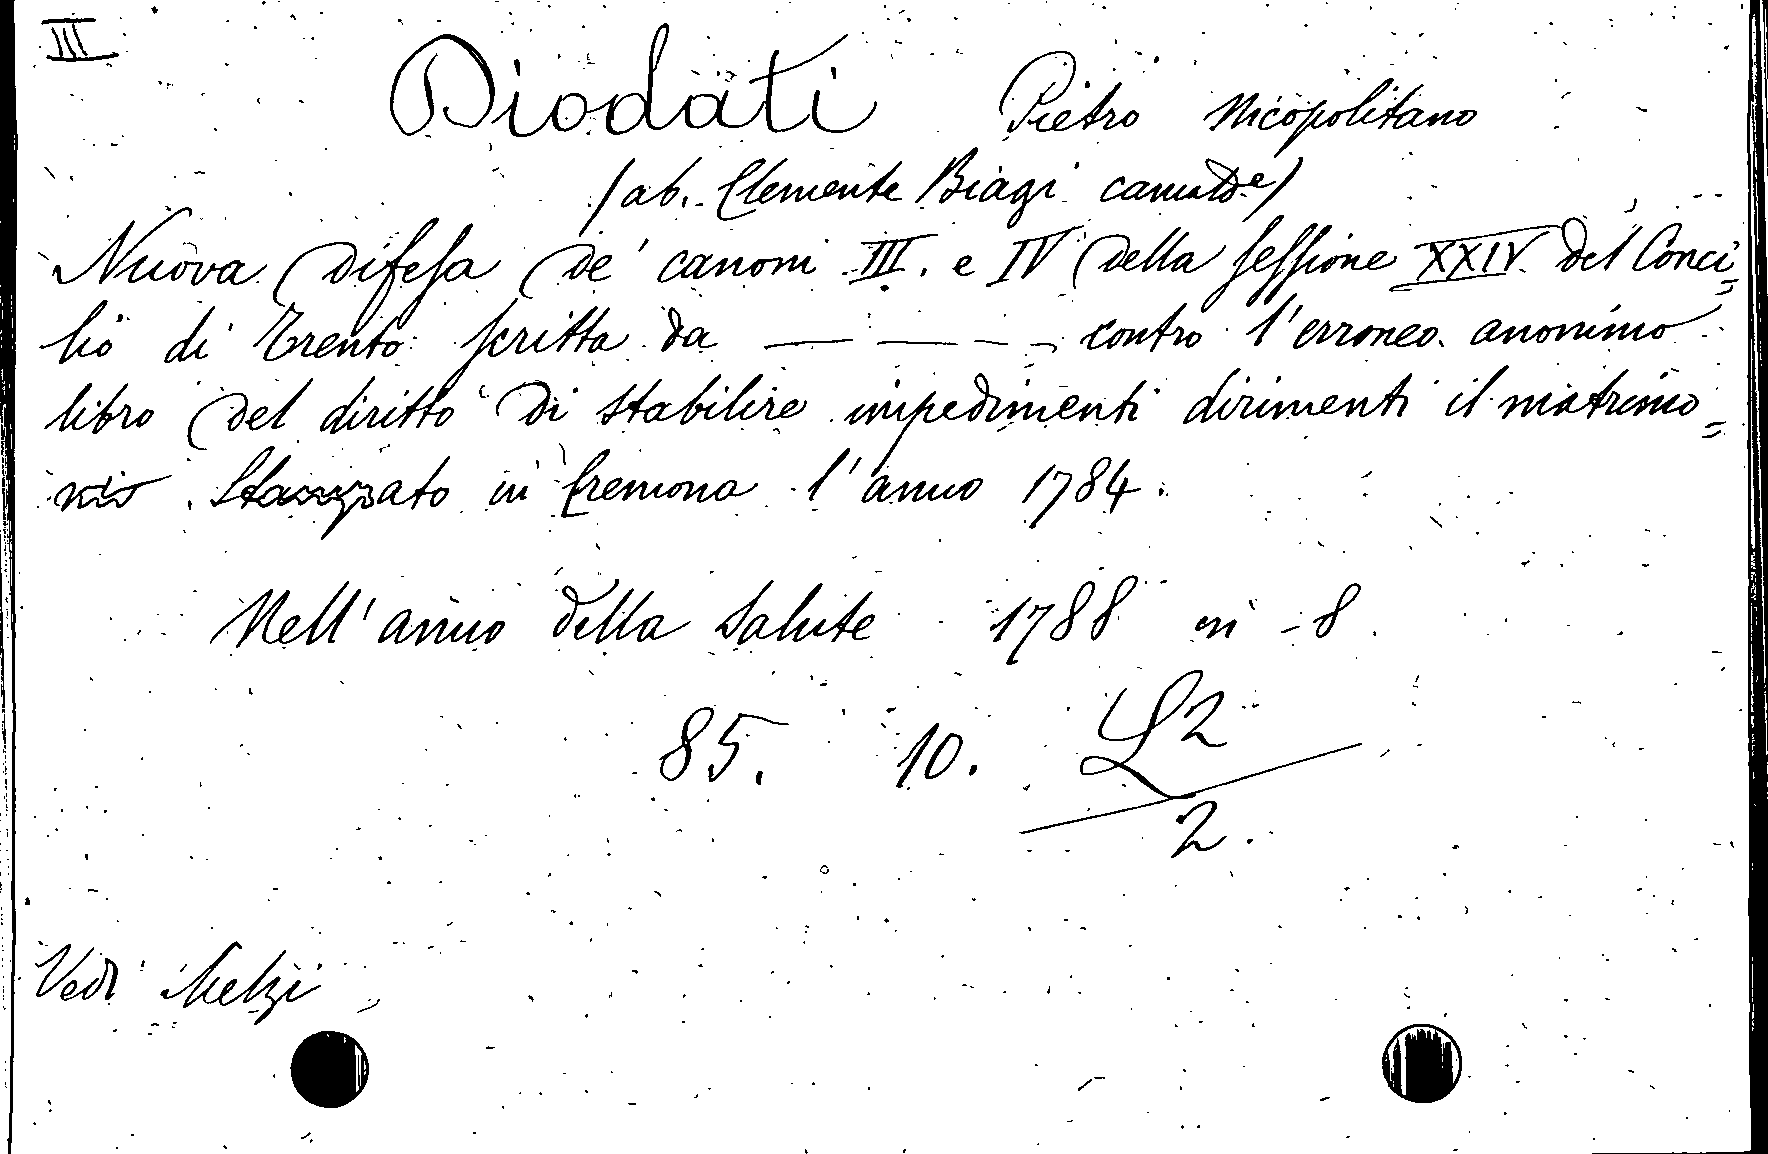 III
Diodati Pietro Nicopolitano
(ab. Clemente Biagi camald.e)
Nuova difesa de' canoni III. e IV della sessione XXIV del Conci=
lio di Trento scritta da — — — — contro l'erroneo anonimo
libro del diritto di stabilire impedimenti dirimenti il matrimo=
nio. Stampato in Cremona l'anno 1784.
Nell'anno della Salute 1788 in -8.
85. 10. L2
2.
Vedi Melzi